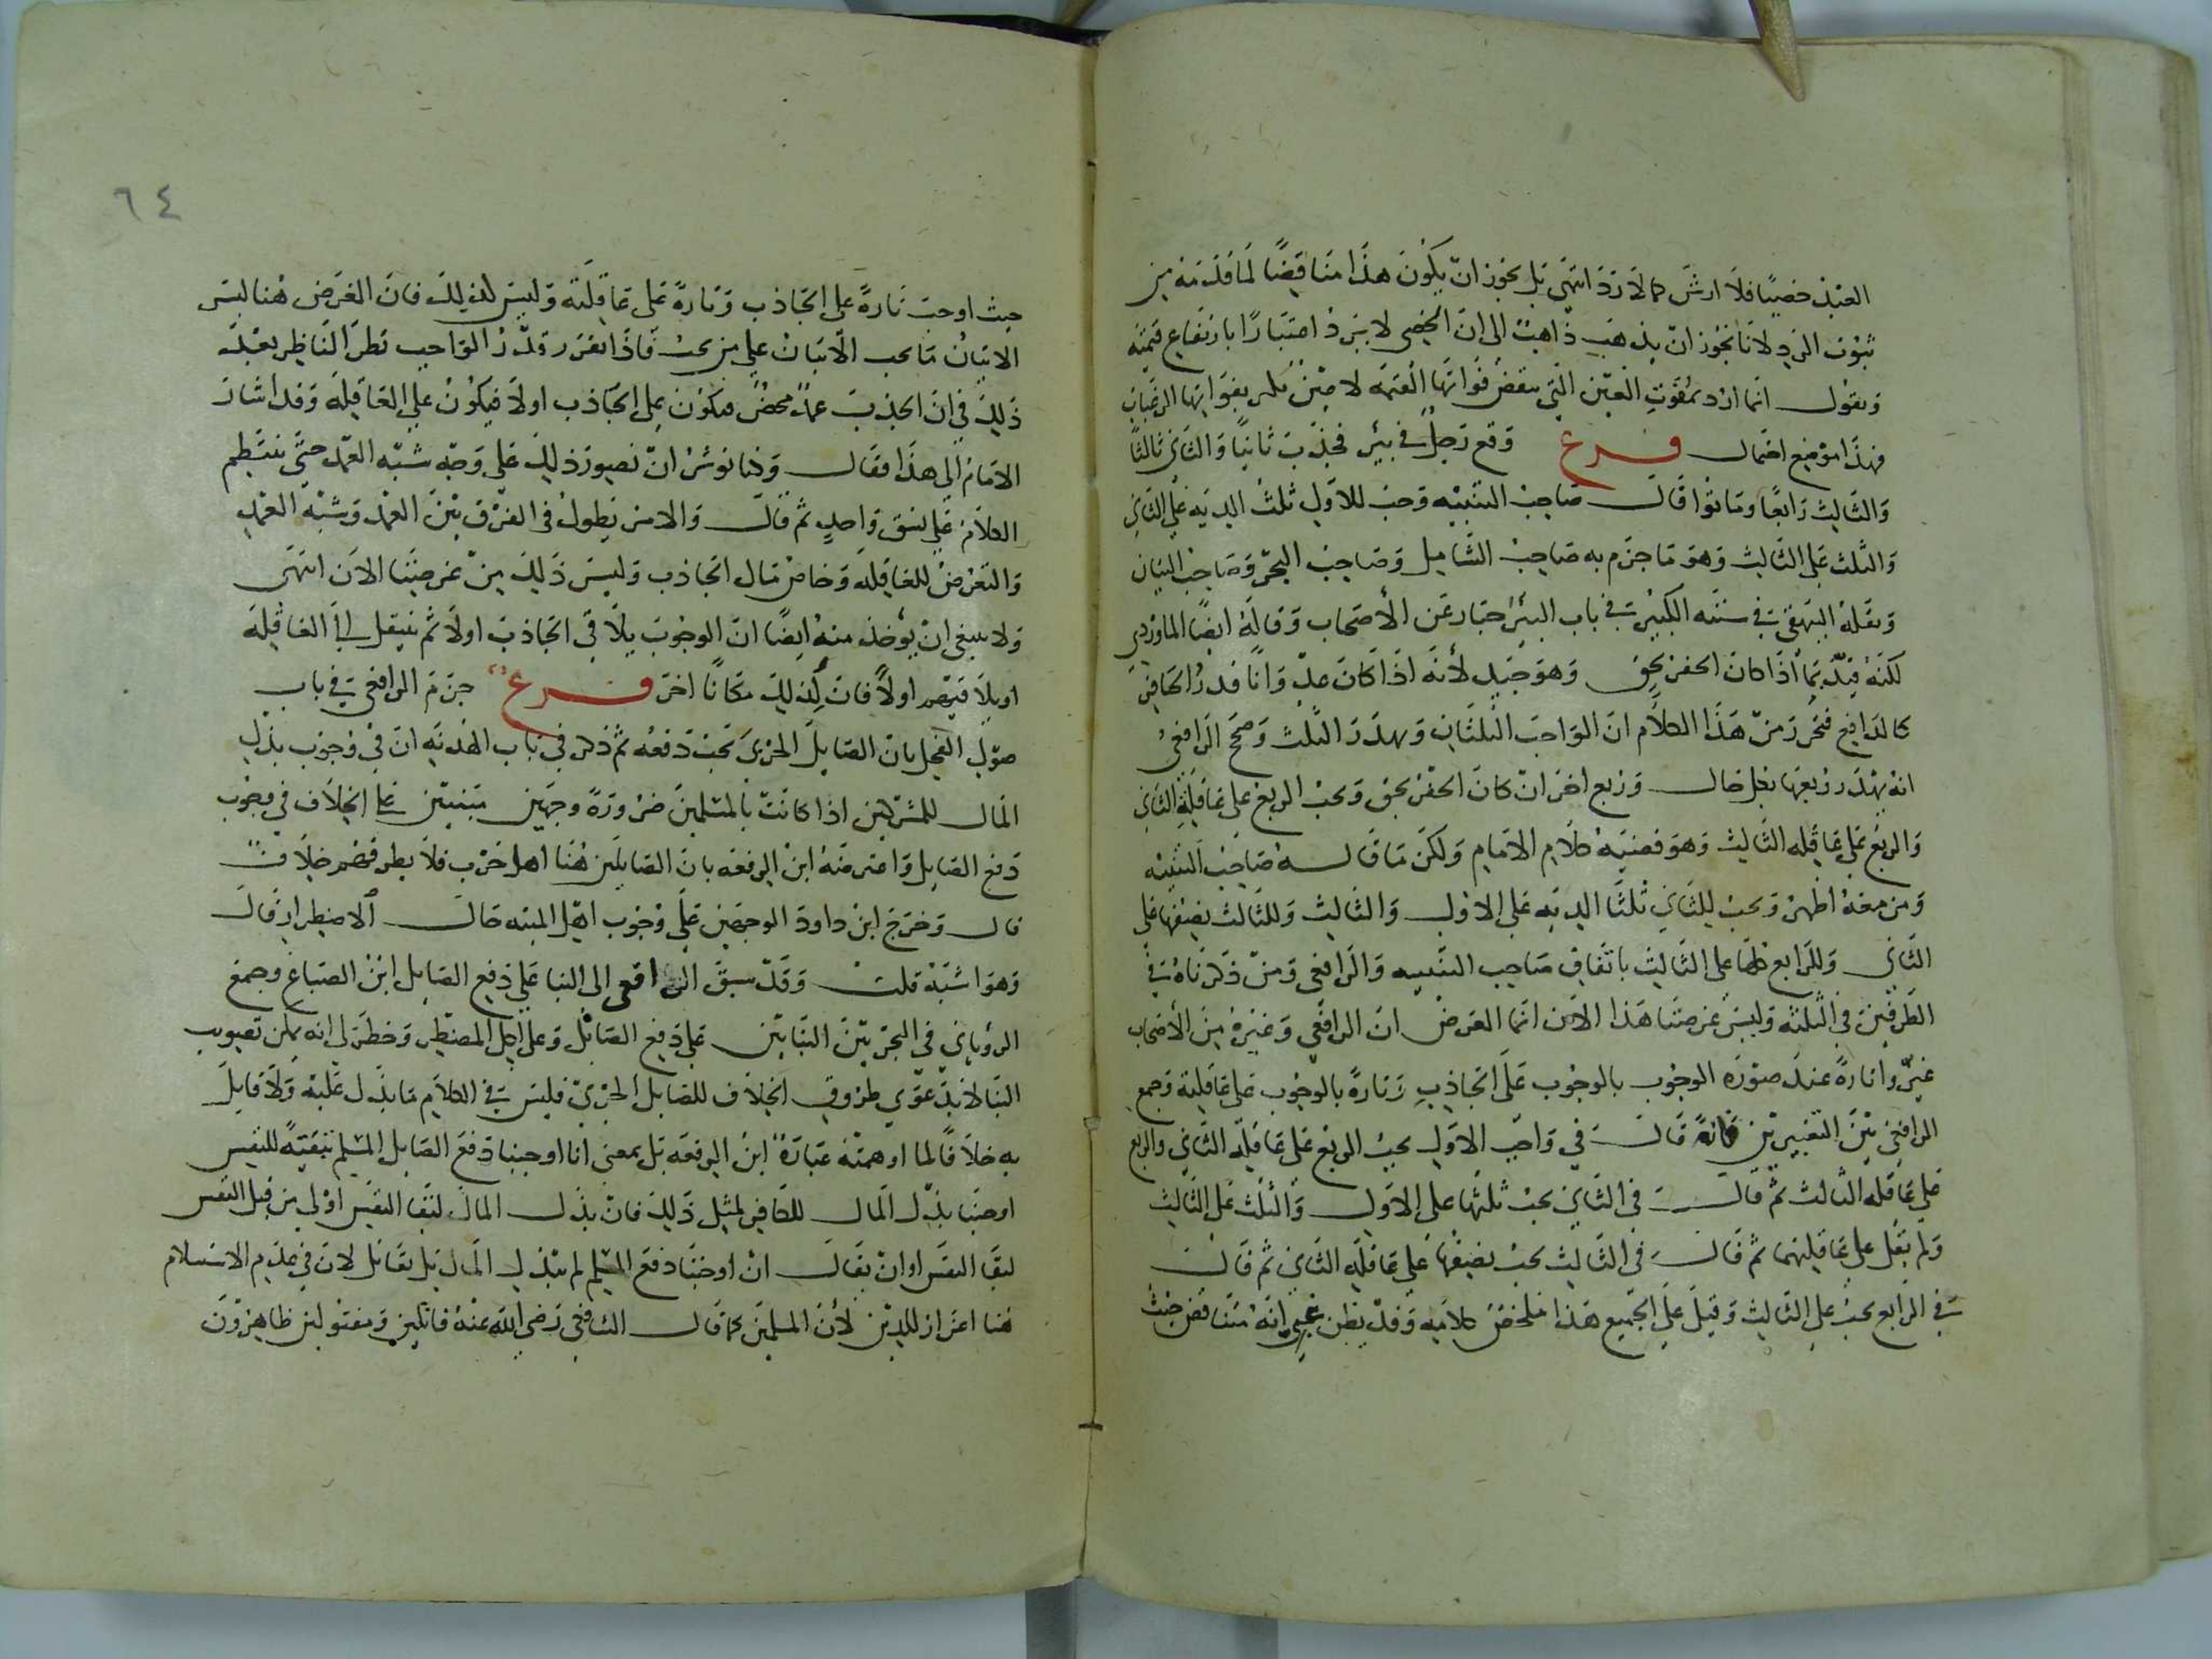 العبد خصيًا فلا ارش كما لا رد انتهى بل يجوز ان يكون هذا مناقضًا لما قدمه من
ثبوت الرد لانا نجوز ان يذهب ذاهب الى ان الخصي لا يرد اعتبارًا بارتفاع قيمته
ويقول انما ارد بفوت العين التي ينقص فواتها القيمة لا عين لم يفوت بفواتها الرغبات
فهذا موضع احتمال فرع وقع رجل في بئر فجذب ثانيًا والثاني ثالثًا
والثالث رابعًا وماتوا قال صاحب التنبيه وجب للاول ثلث الدية على الثاني
والثلث على الثالث وهو ما جزم به صاحب الشامل وصاحب البحر وصاحب البيان
ونقله البيهقي في سننه الكبير في باب البئر جبار عن الأصحاب وقاله ايضًا الماوردي
لكنه قيده بما اذا كان الحفر بحق وهو جيد لأنه اذا كان عدوانًا قدر الحافر
كالدافع فتحرر من هذا الكلام ان الواجب الثلثان ويهدر الثلث وصحح الرافعي
انه يهدر ربعها بفعل خال وربع اخر ان كان الحفر بحق ويجب الربع على عاقلة الثاني
والربع على عاقلة الثالث وهو قضية كلام الامام ولكن ما قاله صاحب التنبيه
ومن معه اظهر ويجب للثاني ثلثا الدية على الاول والثالث وللثالث نصفها على
الثاني وللرابع كلها على الثالث باتفاق صاحب التنبيه والرافعي ومن ذكرناه في
الطرفين في الثلثة وليس غرضنا هذا الان انما الغرض ان الرافعي وغيره من الأصحاب
عبروا تارة عند صورة الوجوب بالوجوب على الجاذب وتارة بالوجوب على عاقلته وجمع
الرافعي بين التعبيرين فانه قال في واجب الاول يجب الربع على عاقلة الثاني والربع
على عاقلة الثالث ثم قال في الثاني يجب ثلثها على الاول والثلث على الثالث
ولم يقل على عاقلتهما ثم قال في الثالث يجب نصفها على عاقلة الثاني ثم قال
في الرابع يجب على الثالث وقيل على الجميع هذا ملخص كلامه وقد يظن غبي انه متناقض حيث
٦٤
حيث اوجب تارةً على الجاذب وتارةً على عاقلته وليس كذلك فان الغرض هنا ليس
الا بيان ما يجب لا بيان على من يجب فاذا تقرر وقدر الواجب نظر الناظر بعد
ذلك في ان الجذب عمد محض فيكون على الجاذب اولا فيكون على العاقلة وقد اشار
الامام الى هذا فقال وكنا نوثر ان نصور ذلك على وجه شبه العمد حتى ينتظم
الكلام على نسق واحد ثم قال والامر يطول في الفرق بين العمد وشبه العمد
والتعرض للعاقلة وخاص مال الجاذب وليس ذلك من غرضنا الان انتهى
ولا ينبغي ان يؤخذ منه ايضًا ان الوجوب يلاقي الجاذب اولا ثم ينتقل الى العاقلة
اويلاقيهم اولاً فان لذلك مكانًا اخر فرع جزم الرافعي في باب
صول الفحل بان الصايل الحربي يجب دفعه ثم ذكر في باب الهدنة ان في وجوب بذل
المال للمشركين اذا كانت بالمسلمين ضرورة وجهين مبنيين على الخلاف في وجوب
دفع الصايل واعترضه ابن الرفعة بان الصايلين هنا اهل حرب فلا يطرقهم خلاف
قال وخرج ابن داود الوجهين على وجوب اكل الميتة حال الاضطرار قال
وهو اشبه قلت وقد سبق الرافعي الى البنا على دفع الصايل ابن الصباغ وجمع
الروياني في البحر بين البنايين على دفع الصايل وعلى اكل المضطر وخطر لي انه يمكن تصويب
البنا لا بدعوى طروق الخلاف للصايل الحربي فليس في الكلام ما يدل عليه ولا قايل
به خلافًا لما اوهمته عبارة ابن الرفعة بل بمعنى انا اوجبنا دفع الصايل المسلم تبقيةً للنفس
اوجبنا بذل المال للكافر لمثل ذلك فان بذل المال لبقا النفس اولى من قتل النفس
لبقا النفس او ان يقال ان اوجبنا دفع المسلم لم نبذل المال بل نقاتل لان في عدم الاستسلام
هنا اعزاز للدين لأن المسلمين كما قال الشافعي رضي الله عنه قاتلين ومقتولين ظاهرون